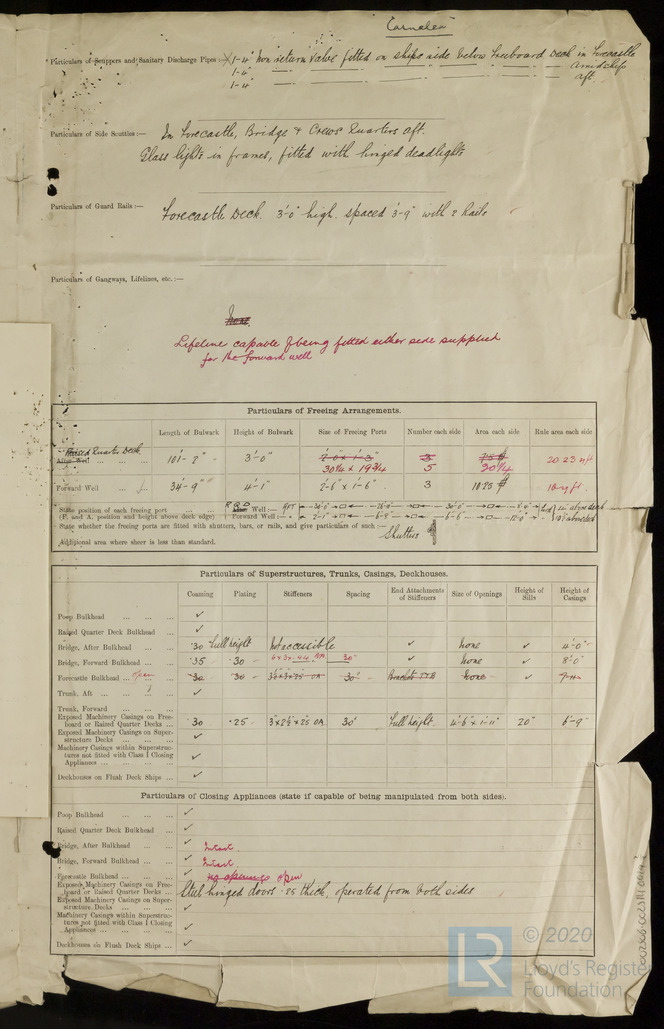 "Carnelea"
Particulars of Scuppers and Sanitary Discharge Pipes :— 1-4" Non return Valve fitted on ships side below Freeboard Deck in Forecastle
1-4" amidships
1-4" aft.
Particulars of Side Scuttles :— In Forecastle, Bridge & Crews' Quarters aft.
Glass lights in frames, fitted with hinged deadlights
Particulars of Guard Rails :— Forecastle Deck. 3'-0" high. spaced 3'-9" with 2 Rails
Particulars of Gangways, Lifelines, etc. :—
None
Lifeline capable of being fitted either side supplied
for the forward well
Particulars of Freeing Arrangements.
Length of Bulwark Height of Bulwark Size of Freeing Ports Number each side Area each side Rule area each side
Raised Quarter Deck
After Well 101'-2" 3'-0" 30¼ x 19¾ 5 20¼ 20.23 sq ft
Forward Well 34'-9" 4'-1" 2'-6" x 1'-6" 3 10.25
State position of each freeing port
(F. and A. position and height above deck edge) Forward Well :—
State whether the freeing ports are fitted with shutters, bars, or rails, and give particulars of such :— Shutters
Additional area where sheer is less than standard.
Particulars of Superstructures, Trunks, Casings, Deckhouses.
Coaming Plating Stiffeners Spacing End Attachments of Stiffeners Size of Openings Height of Sills Height of Casings
Poop Bulkhead ✓
Raised Quarter Deck Bulkhead ✓
Bridge, After Bulkhead .30 full height Not accessible ✓ None ✓ 4'-0"
Bridge, Forward Bulkhead .35 .30 6x3x.44 30" ✓ None ✓ 8'-0"
Forecastle Bulkhead open .30 .30 30" None
Trunk, Aft ✓
Trunk, Forward
Exposed Machinery Casings on Free-
board or Raised Quarter Decks .30 .25 3"x2½"x.25 OA 30" full height 4'-6" x 1'-11" 20" 6'-9"
Exposed Machinery Casings on Super-
structure Decks ✓
Machinery Casings within Superstruc-
tures not fitted with Class I Closing
Appliances ✓
Deckhouses on Flush Deck Ships ✓
Particulars of Closing Appliances (state if capable of being manipulated from both sides).
Poop Bulkhead ✓
Raised Quarter Deck Bulkhead ✓
Bridge, After Bulkhead ✓ Intact
Bridge, Forward Bulkhead ✓ Intact
Forecastle Bulkhead ✓ no openings open
Exposed Machinery Casings on Free-
board or Raised Quarter Decks Steel hinged doors .25 thick, operated from both sides
Exposed Machinery Casings on Super-
structure Decks ✓
Machinery Casings within Superstruc-
tures not fitted with Class I Closing
Appliances ✓
Deckhouses on Flush Deck Ships ✓
LR © 2020
Lloyd's Register
Foundation